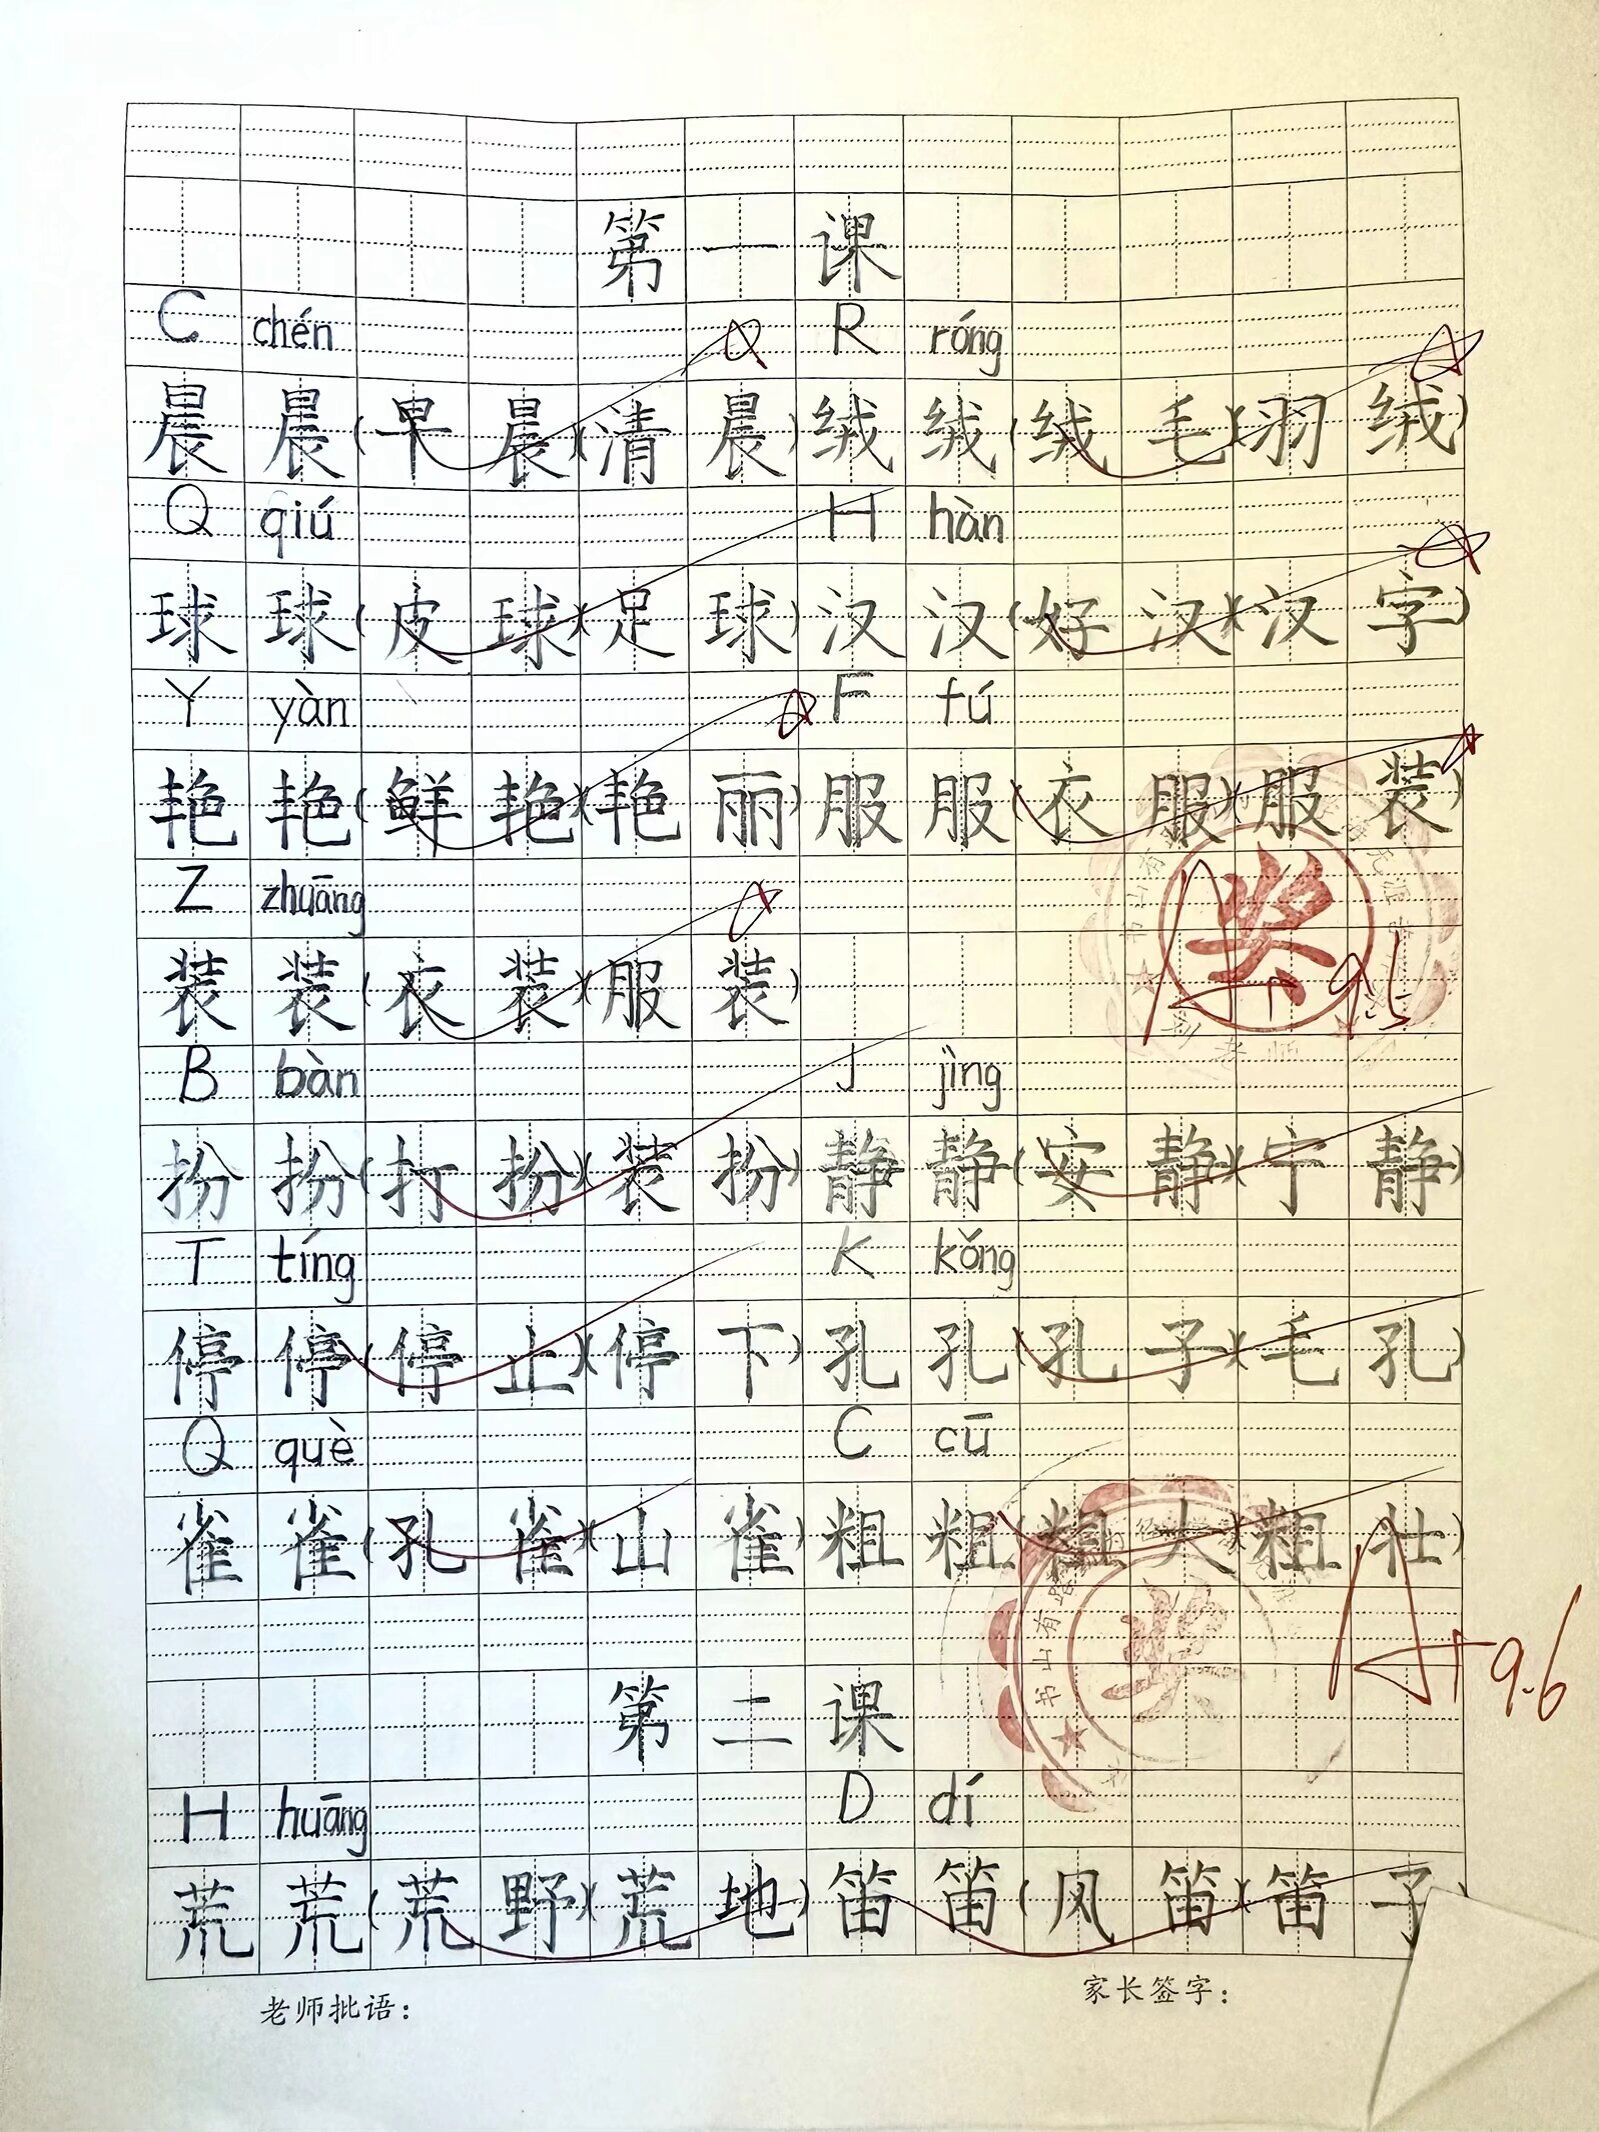 第一课
C chén R róng
晨晨(早晨)(清晨)绒绒(绒毛)(羽绒)
Q qiú H hàn
球球(皮球)(足球)汉汉(好汉)(汉字)
Y yàn F fú
艳艳(鲜艳)(艳丽)服服(衣服)(服装)
Z zhuāng
装装(衣装)(服装)
奖
A+ 9.5
B bàn J jìng
扮扮(打扮)(装扮)静静(安静)(宁静)
T tíng K kǒng
停停(停止)(停下)孔孔(孔子)(毛孔)
Q què C cū
雀雀(孔雀)(山雀)粗粗(粗大)(粗壮)
书山有路
奖
A+ 9.6
第二课
H huāng D dí
荒荒(荒野)(荒地)笛笛(风笛)(笛子
老师批语： 家长签字：